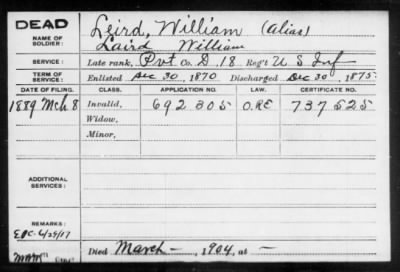 DEAD
NAME OF SOLDIER:
Leird, William (Alias)
Laird William
SERVICE: Late rank, Pvt. Co. D, 18 Reg't U S Inf
TERM OF SERVICE: Enlisted Dec 30, 1870 Discharged Dec 30, 1875.
DATE OF FILING. CLASS. APPLICATION NO. LAW. CERTIFICATE NO.
1889 Mch 8 Invalid, 692 305 O.RE 737 525
Widow,
Minor,
ADDITIONAL SERVICES:
REMARKS:
4/29/17
Died March —, 1904, at —